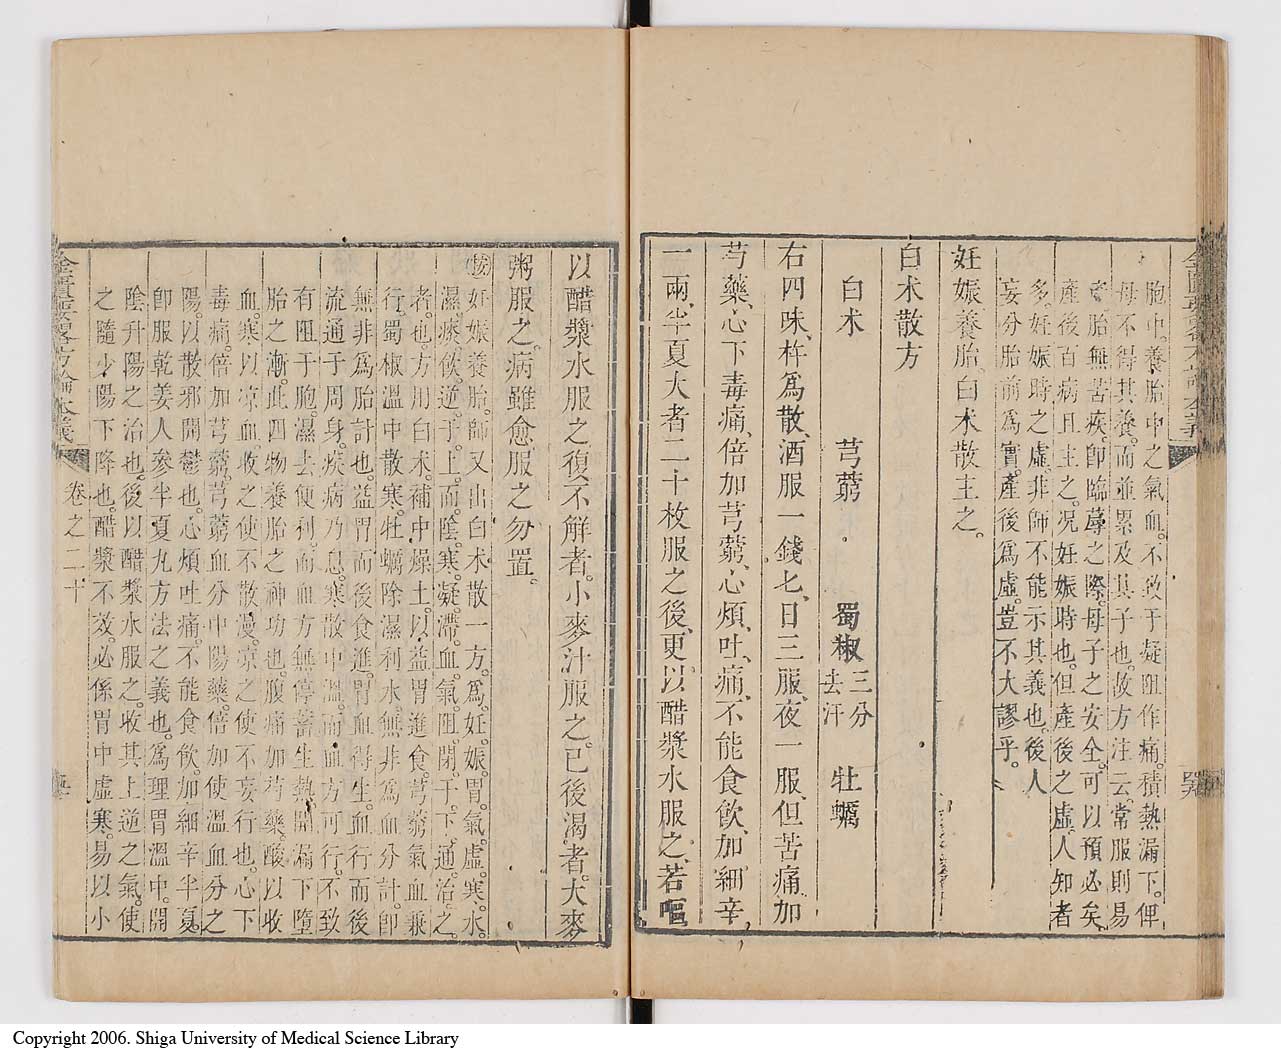 胞中。養胎中之氣血。不致于凝阻作痛。積熱漏下。俾
母不得其養。而並累及其子也。故方注云。常服則易
產。胎無苦疾。卽臨蓐之際。母子之安全。可以預必矣。
產後百病且主之。況妊娠時也。但產後之虛。人知者
多。妊娠時之虛。非師不能示其義也。後人
妄分胎前爲實。產後爲虛。豈不大謬乎。
妊娠養胎。白术散主之。
白术散方
白术 芎藭 蜀椒三分去汗 牡蠣
右四味、杵爲散、酒服一錢匕、日三服、夜一服、但苦痛加
芍藥、心下毒痛、倍加芎藭、心煩、吐、痛、不能食飲、加細辛、
一兩、半夏大者二十枚服之後、更以醋漿水服之、若嘔、
以醋漿水服之、復不解者、小麥汁服之、已後渴者、大麥
粥服之。病雖愈、服之勿置。
妊娠養胎。師又出白术散一方。爲妊娠。胃氣虛寒。水
濕痰飲。逆于上。而陰寒凝滯。血氣阻閉。于下。通治之
者也。方用白术。補中燥土。以益胃進食。芎藭氣血兼
行。蜀椒溫中散寒。牡蠣除濕利水。無非爲血分計。卽
無非爲胎計也。益胃而後食進。胃血得生。血行而後
流通于周身。疾病乃息。寒散中溫。而血方可行。不致
有阻于胞。濕去便利。而血方無停蓄生熱。開漏下墮
胎之漸。此四物養胎之神功也。腹痛加芍藥。酸以收
血。寒以凉血。收之使不散漫。凉之使不妄行也。心下
毒痛。倍加芎藭。芎藭血分中陽藥。倍加使溫血分之
陽。以散邪開鬱也。心煩吐痛。不能食飲。加細辛半夏。
卽服乾姜人參半夏丸方法之義也。爲理胃溫中。開
陰升陽之治也。後以醋漿水服之。收其上逆之氣。使
之隨少陽下降也。醋漿不效。必係胃中虛寒。易以小
金匱要畧方論本義 卷之二十